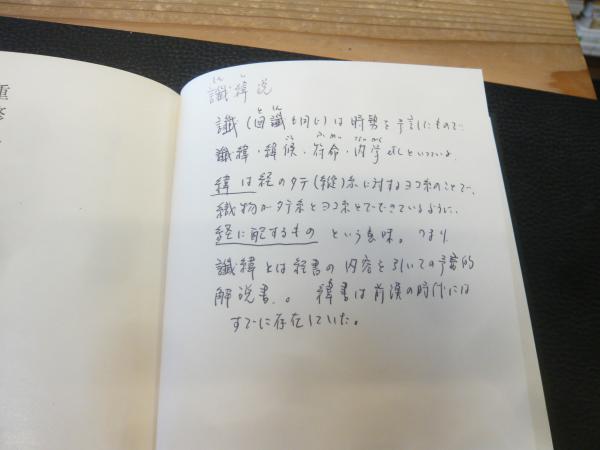 しん い
讖緯説
と しん
讖(図讖も同じ)は時勢を予言したもので、
こう ふ めい ない がく
讖緯・緯候・符命・内学etcといっている。
緯は経のタテ(縦)糸に対するヨコ糸のことで、
織物がタテ糸とヨコ糸とでできているように、
経に配するもの という意味。つまり
讖緯とは経書の内容を引いての予言的
解説書。。緯書は前漢の時代には
すでに存在していた。
重